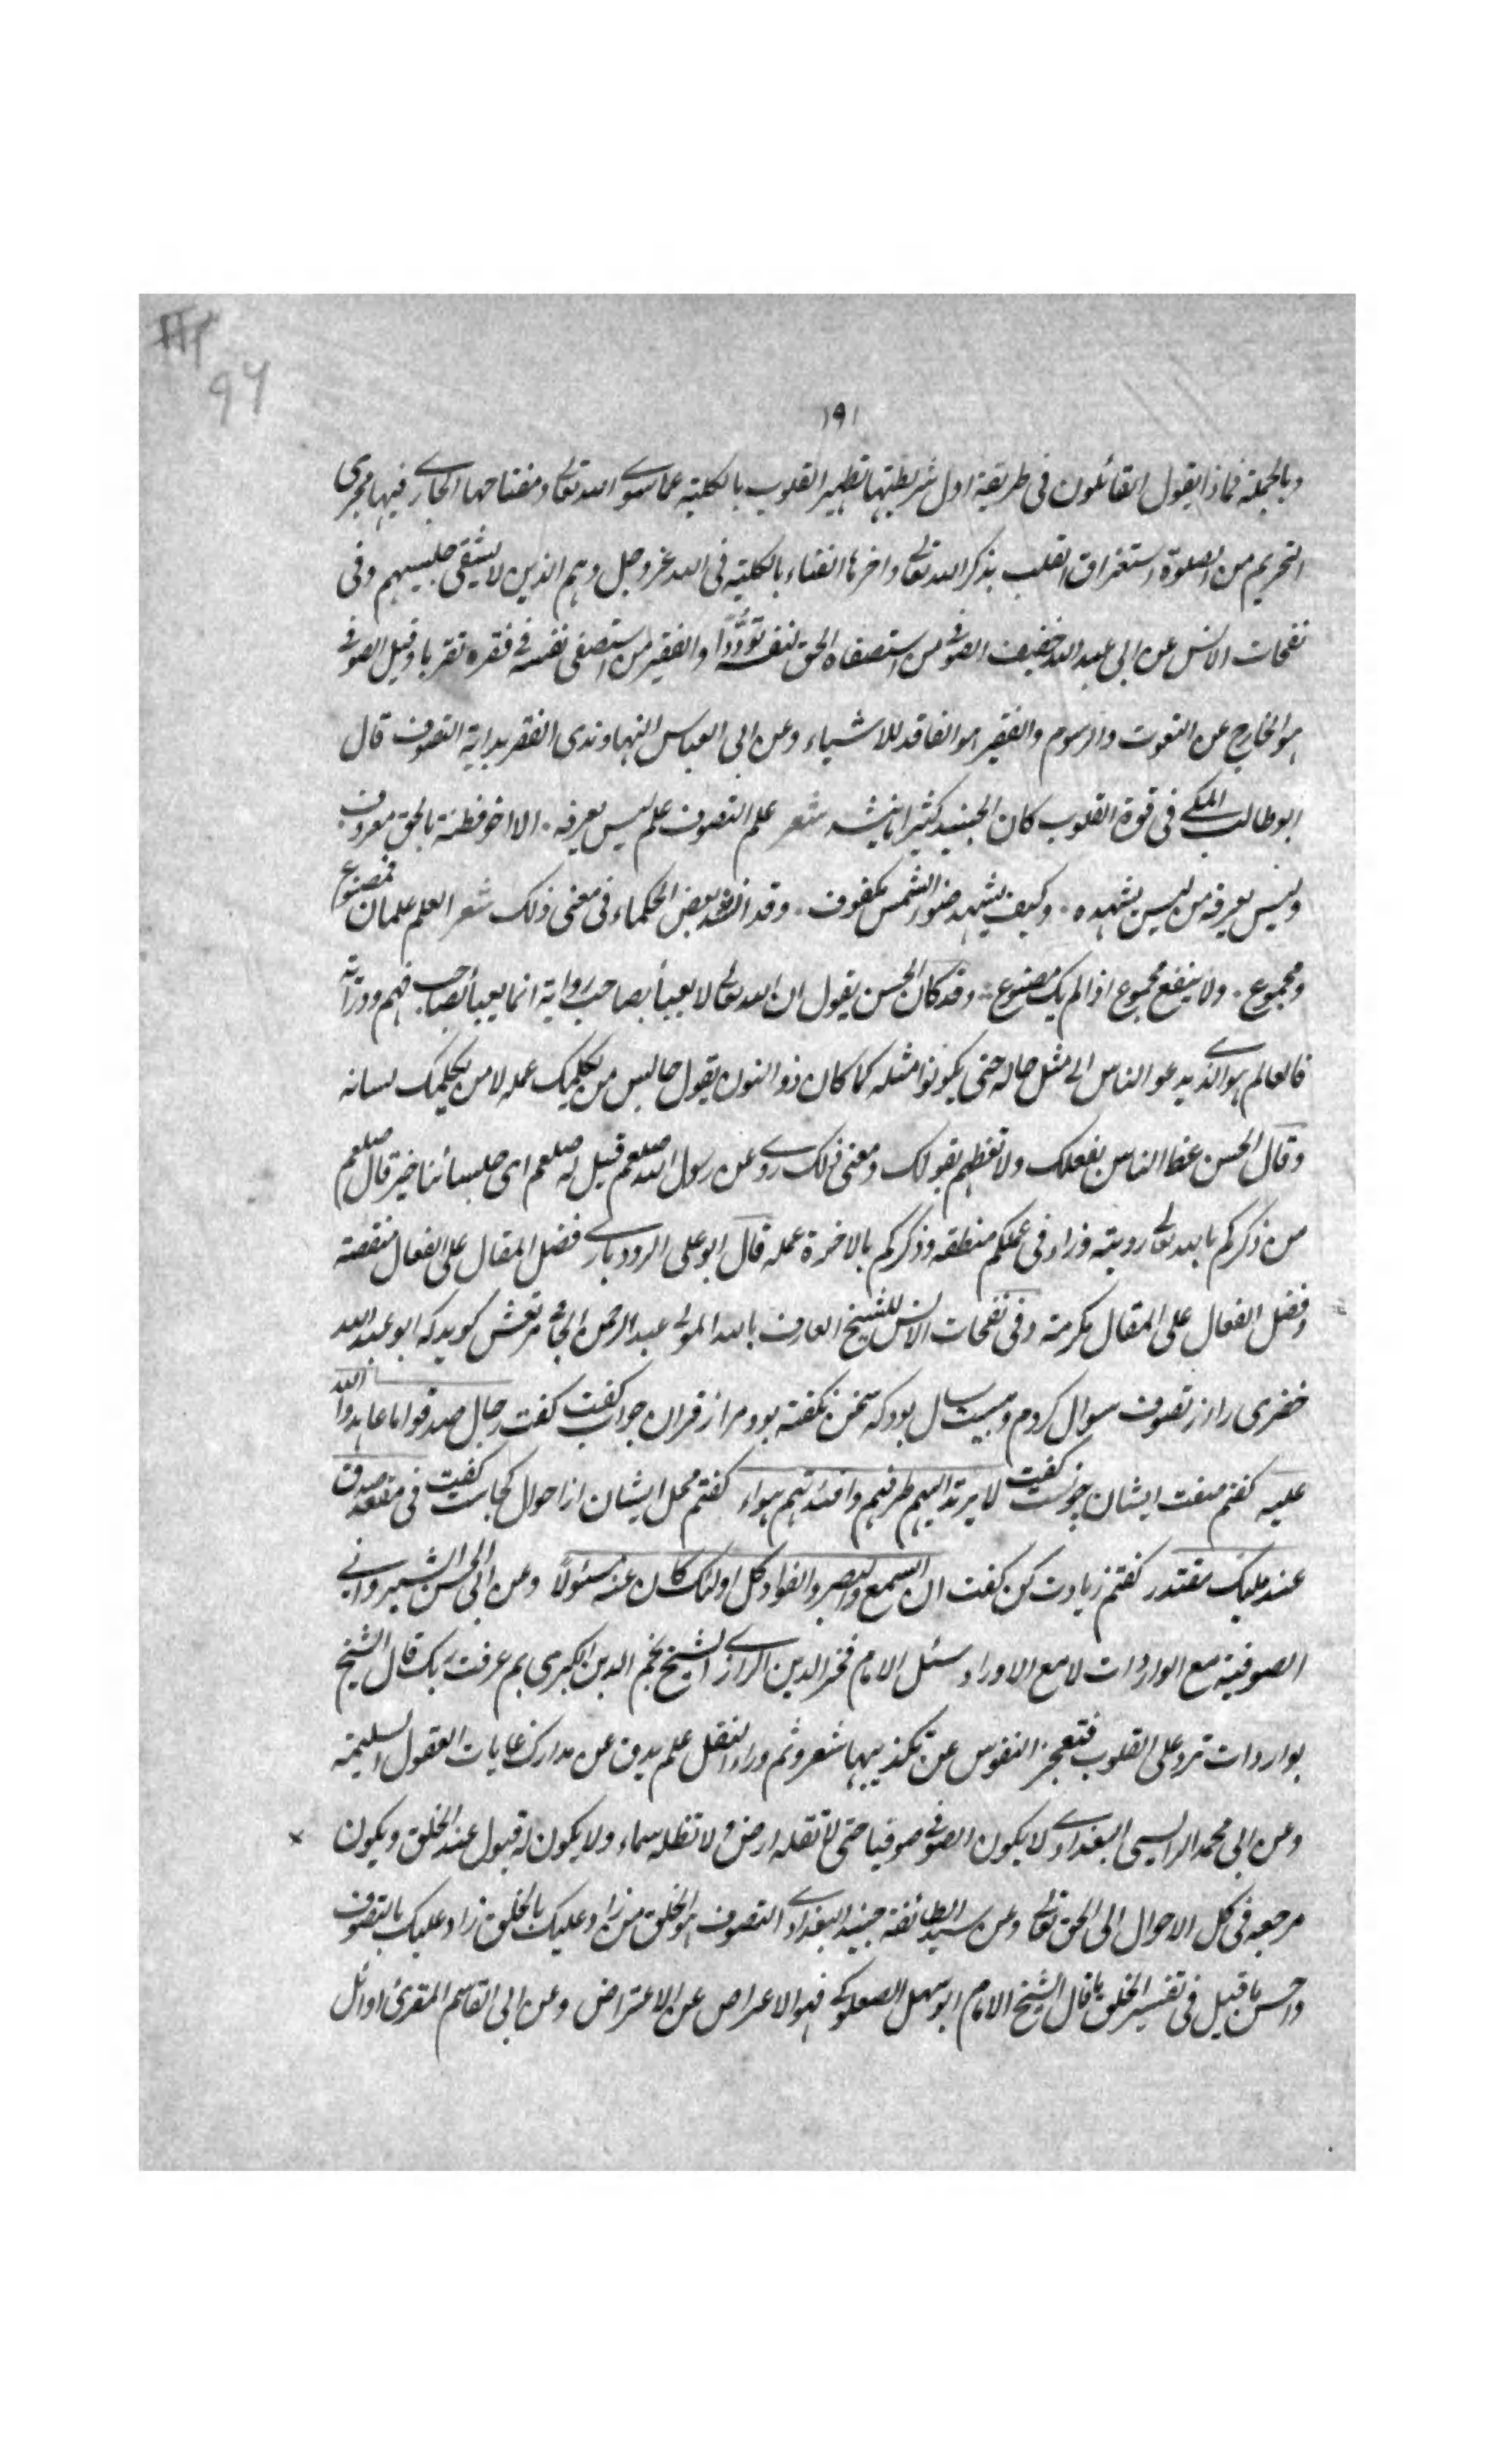 ٩٦
١٩١
وبالجملة فماذا يقول القائلون فى طريقة اول شريطتها تطهير القلوب بالكلية عما سوى الله تعالى ومفتاحها الجارى فيها مجرى
التحريم من الصلوة استغراق القلب بذكر الله تعالى واخرها الفناء بالكلية فى الله عز وجل وهم الذين لا يشقى جليسهم وفى
نفحات الانس عن ابى عبد الله خفيف الصوفى من استصفاه الحق لنفسه توددا والفقير من استصفى نفسه فى فقره تقربا وقيل الصوفى
هو الخارج عن النعوت والرسوم والفقير هو الفاقد للاشياء وعن ابى العباس النهاوندى الفقر بداية التصوف قال
ابو طالب المكى فى قوة القلوب كان الجنيد كثيرا ما ينشد شعر علم التصوف علم ليس يعرفه . الا اخو فطنة بالحق معروف
وليس يعرفه من ليس يشهده . وكيف يشهد ضوء الشمس مكفوف . وقد انشد بعض الحكماء فى معنى ذلك شعر العلم علمان فمصنوع
ومجموع . ولا ينفع مجموع اذا لم يك مصنوع . وقد كان الحسن يقول ان الله تعالى لا يعبأ بصاحب رواية انما يعبأ بصاحب فهم ودراية
فالعالم هو الذى يدعو الناس الى مثل حاله حتى يكونوا مثله كما كان ذو النون يقول جالس من يكلمك عمله لا من يكلمك لسانه
وقال الحسن عظ الناس بفعلك ولا تعظهم بقولك ومعنى ذلك روى عن رسول الله صلعم قيل له صلعم اى جلسائنا خير قال صلعم
من ذكركم بالله تعالى رويته وزاد فى عملكم منطقه وذكركم بالاخرة عمله قال ابو على الرودبارى فضل المقال على الفعال منقصة
وفضل الفعال على المقال مكرمة وفى نفحات الانس للشيخ العارف بالله المولى عبد الرحمن الجامى مرتعش كويد كه ابو عبد الله
خضرى را از تصوف سوال كردم وبيست سال بود كه سخن نكفته بود مرا از قران جواب كفت كفت رجال صدقوا ما عاهدوا الله
عليه كفتم صفت ايشان چونست كفت لا يرتد اليهم طرفهم وافئدتهم هواء كفتم محل ايشان از احوال كجاست كفت فى مقعد صدق
عند مليك مقتدر كفتم زيادت كن كفت ان السمع والبصر والفؤاد كل اولئك كان عنه مسئولا وعن ابى الحسن الشيروانى
الصوفية مع الواردات لا مع الاوراد سئل الامام فخر الدين الرازى الشيخ نجم الدين الكبرى بم عرفت ربك قال الشيخ
بواردات ترد على القلوب فتعجز النفوس عن تكذيبها شعر وثم وراء النقل علم يدق عن مدارك غايات العقول السليمة
وعن ابى محمد الراسبى البغدادى لا يكون الصوفى صوفيا حتى لا تقله ارض ولا تظله سماء ولا يكون له قبول عند الخلق ويكون
مرجعه فى كل الاحوال الى الحق تعالى وعن سيد الطائفة جنيد البغدادى التصوف هو الخلق من زاد عليك بالخلق زاد عليك بالتصوف
واحسن ما قيل فى تفسير الخلق ما قال الشيخ الامام ابو سهل الصعلوكى فهو الاعراض عن الاعتراض وعن ابى القاسم المقرئ اوائل